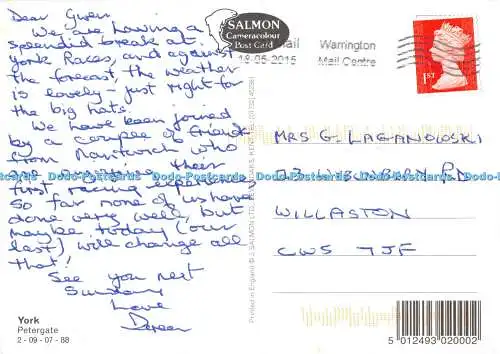 Dear Gwen
We are having a
splendid break at
York Races, and against
the forecast, the weather
is lovely - just right for
the big hats.
We have been joined
by a couple of friends
from Nantwich who
their
first racing experience
So far none of us have
done very well, but
maybe today (our
last) will change all
that!
See you next
Sunday
Love
Doreen
York
Petergate
2 - 09 - 07 - 88
SALMON
Cameracolour
Post Card
Printed in England © J. SALMON LTD.
Mail
18-05-2015
Warrington
Mail Centre
1ST
MRS G. LAGANOWSKI
RD
WILLASTON
CW5 7JF
5 012493 020002
Dodo-Postcards Dodo-Postcards Dodo-Postcards Dodo-Postcards